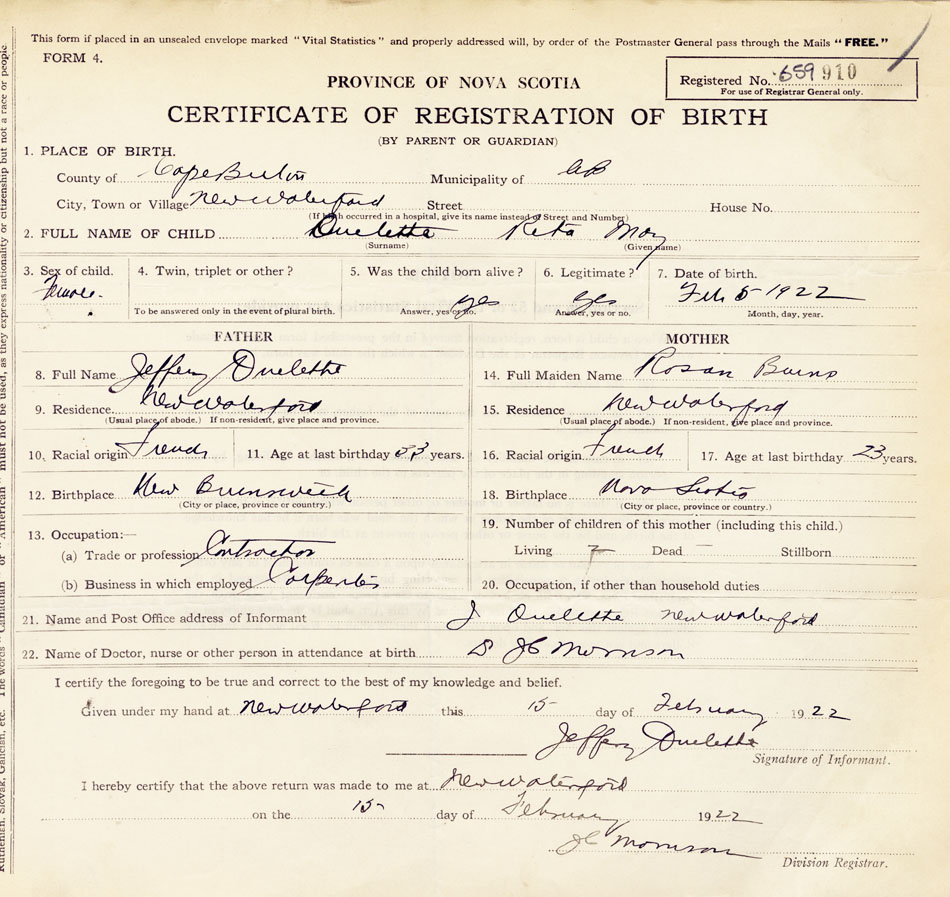 This form if placed in an unsealed envelope marked "Vital Statistics" and properly addressed will, by order of the Postmaster General pass through the Mails "FREE."
FORM 4.
PROVINCE OF NOVA SCOTIA
Registered No. 659 910
For use of Registrar General only.
CERTIFICATE OF REGISTRATION OF BIRTH
(BY PARENT OR GUARDIAN)
1. PLACE OF BIRTH.
County of Cape Breton Municipality of CB
City, Town or Village New Waterford Street House No.
(If birth occurred in a hospital, give its name instead of Street and Number)
2. FULL NAME OF CHILD Ouelette Rita May
(Surname) (Given name)
3. Sex of child. 4. Twin, triplet or other? 5. Was the child born alive? 6. Legitimate? 7. Date of birth.
Female. yes yes Feb 5 1922
To be answered only in the event of plural birth. Answer, yes or no. Answer, yes or no. Month, day, year.
FATHER MOTHER
8. Full Name Jeffery Ouelette 14. Full Maiden Name Rosan Burns
9. Residence New Waterford 15. Residence New Waterford
(Usual place of abode.) If non-resident, give place and province. (Usual place of abode.) If non-resident, give place and province.
10. Racial origin French 11. Age at last birthday 33 years. 16. Racial origin French 17. Age at last birthday 23 years.
12. Birthplace New Brunswick 18. Birthplace Nova Scotia
(City or place, province or country.) (City or place, province or country.)
13. Occupation:— 19. Number of children of this mother (including this child.)
(a) Trade or profession Contractor Living 7 Dead — Stillborn
(b) Business in which employed Carpenter 20. Occupation, if other than household duties
21. Name and Post Office address of Informant J Ouelette New Waterford
22. Name of Doctor, nurse or other person in attendance at birth Morrison
I certify the foregoing to be true and correct to the best of my knowledge and belief.
Given under my hand at New Waterford this 15 day of February 1922
Jeffery Ouelette
Signature of Informant.
I hereby certify that the above return was made to me at New Waterford
on the 15 day of February 1922
Morrison
Division Registrar.
Ruthenian, Slovak, Galician, etc. The words "Canadian" or "American" must not be used, as they express nationality or citizenship but not a race or people